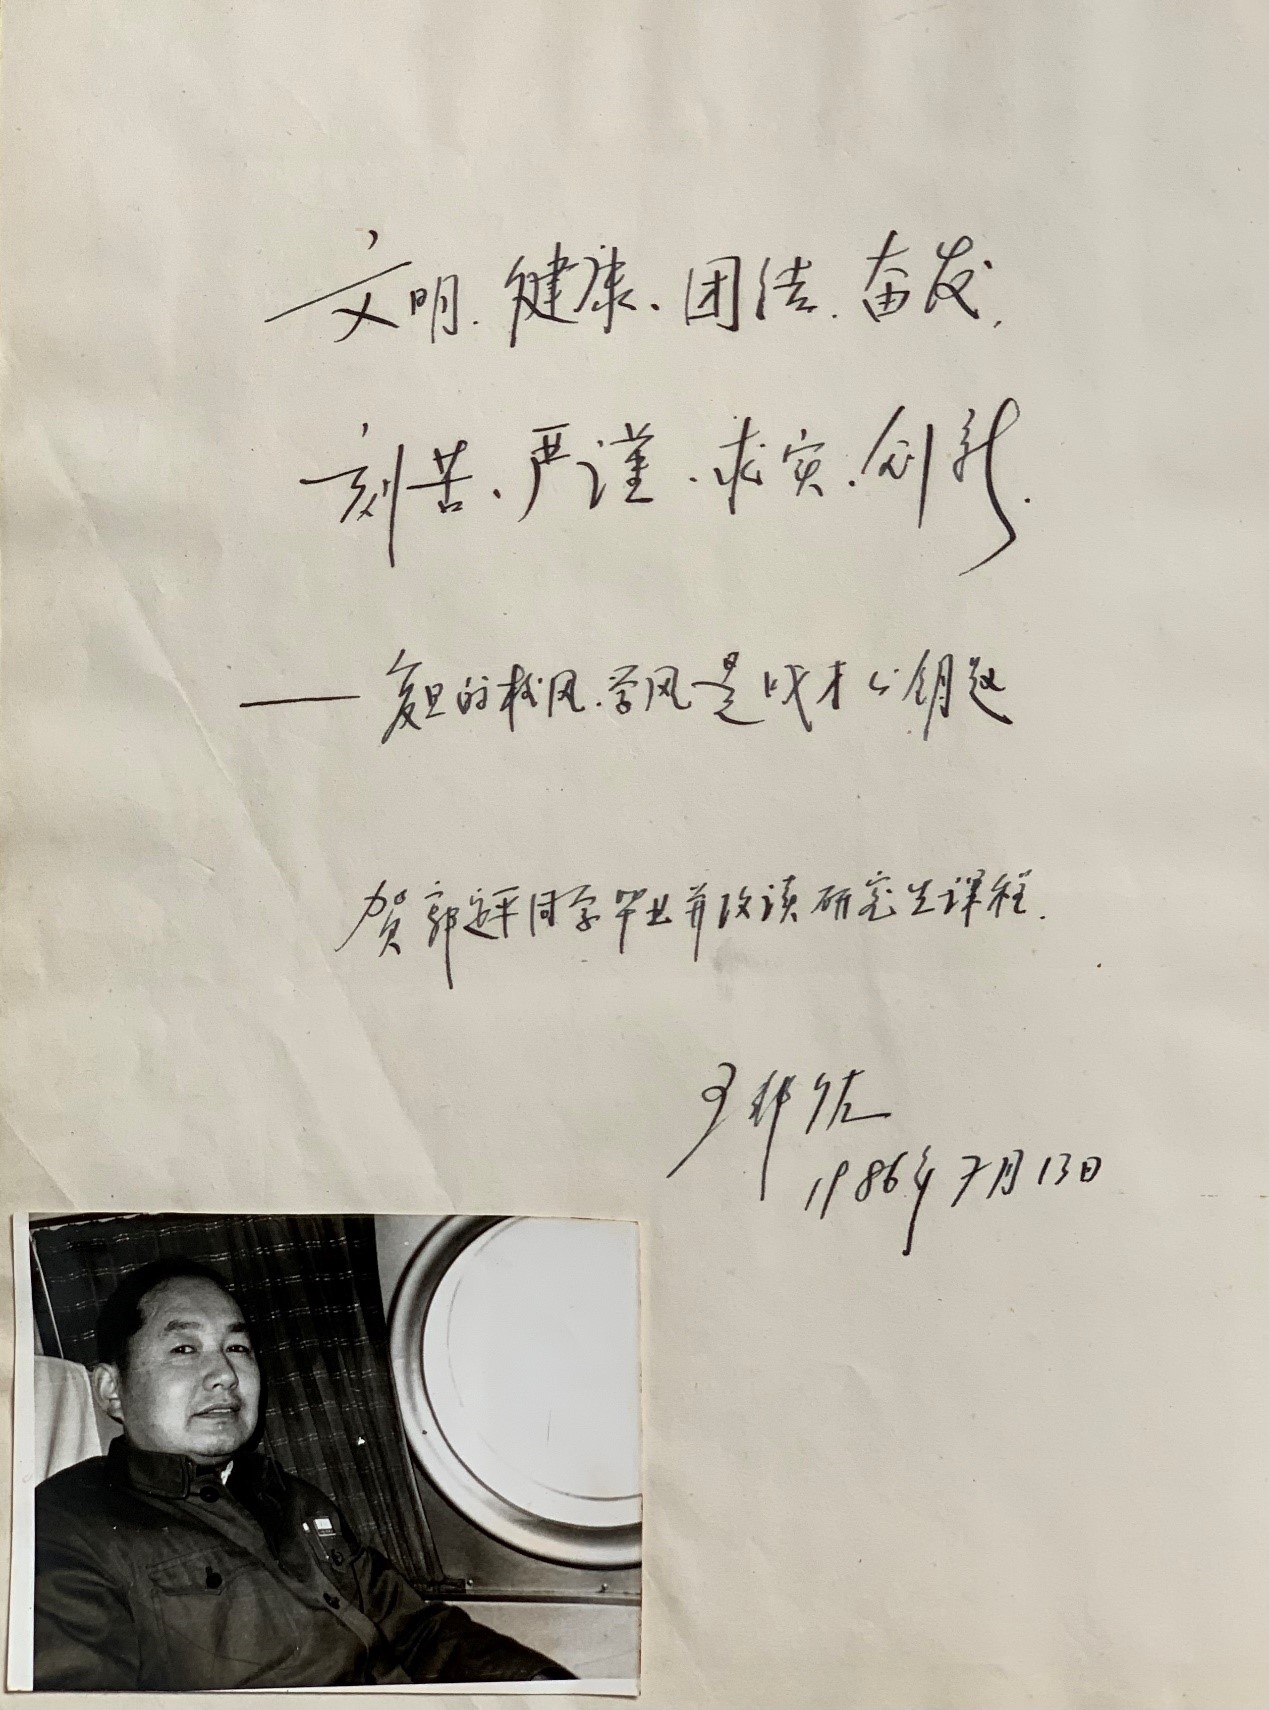 文明、健康、团结、奋发,
刻苦、严谨、求实、创新.
——复旦的校风、学风是成才的钥匙
贺郭定平同学毕业并攻读研究生课程.
王邦佐
1986年7月13日